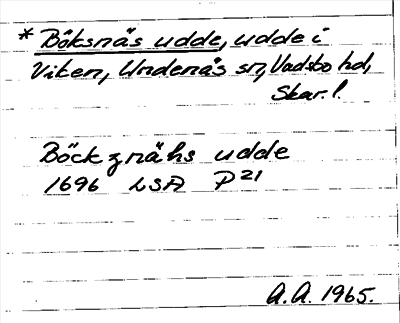 * Böksnäs udde, udde i
Viken, Undenäs sn, Vadsbo hd,
Skar. l.
Böckznähs udde
1696 LSA P 21
A.A. 1965.